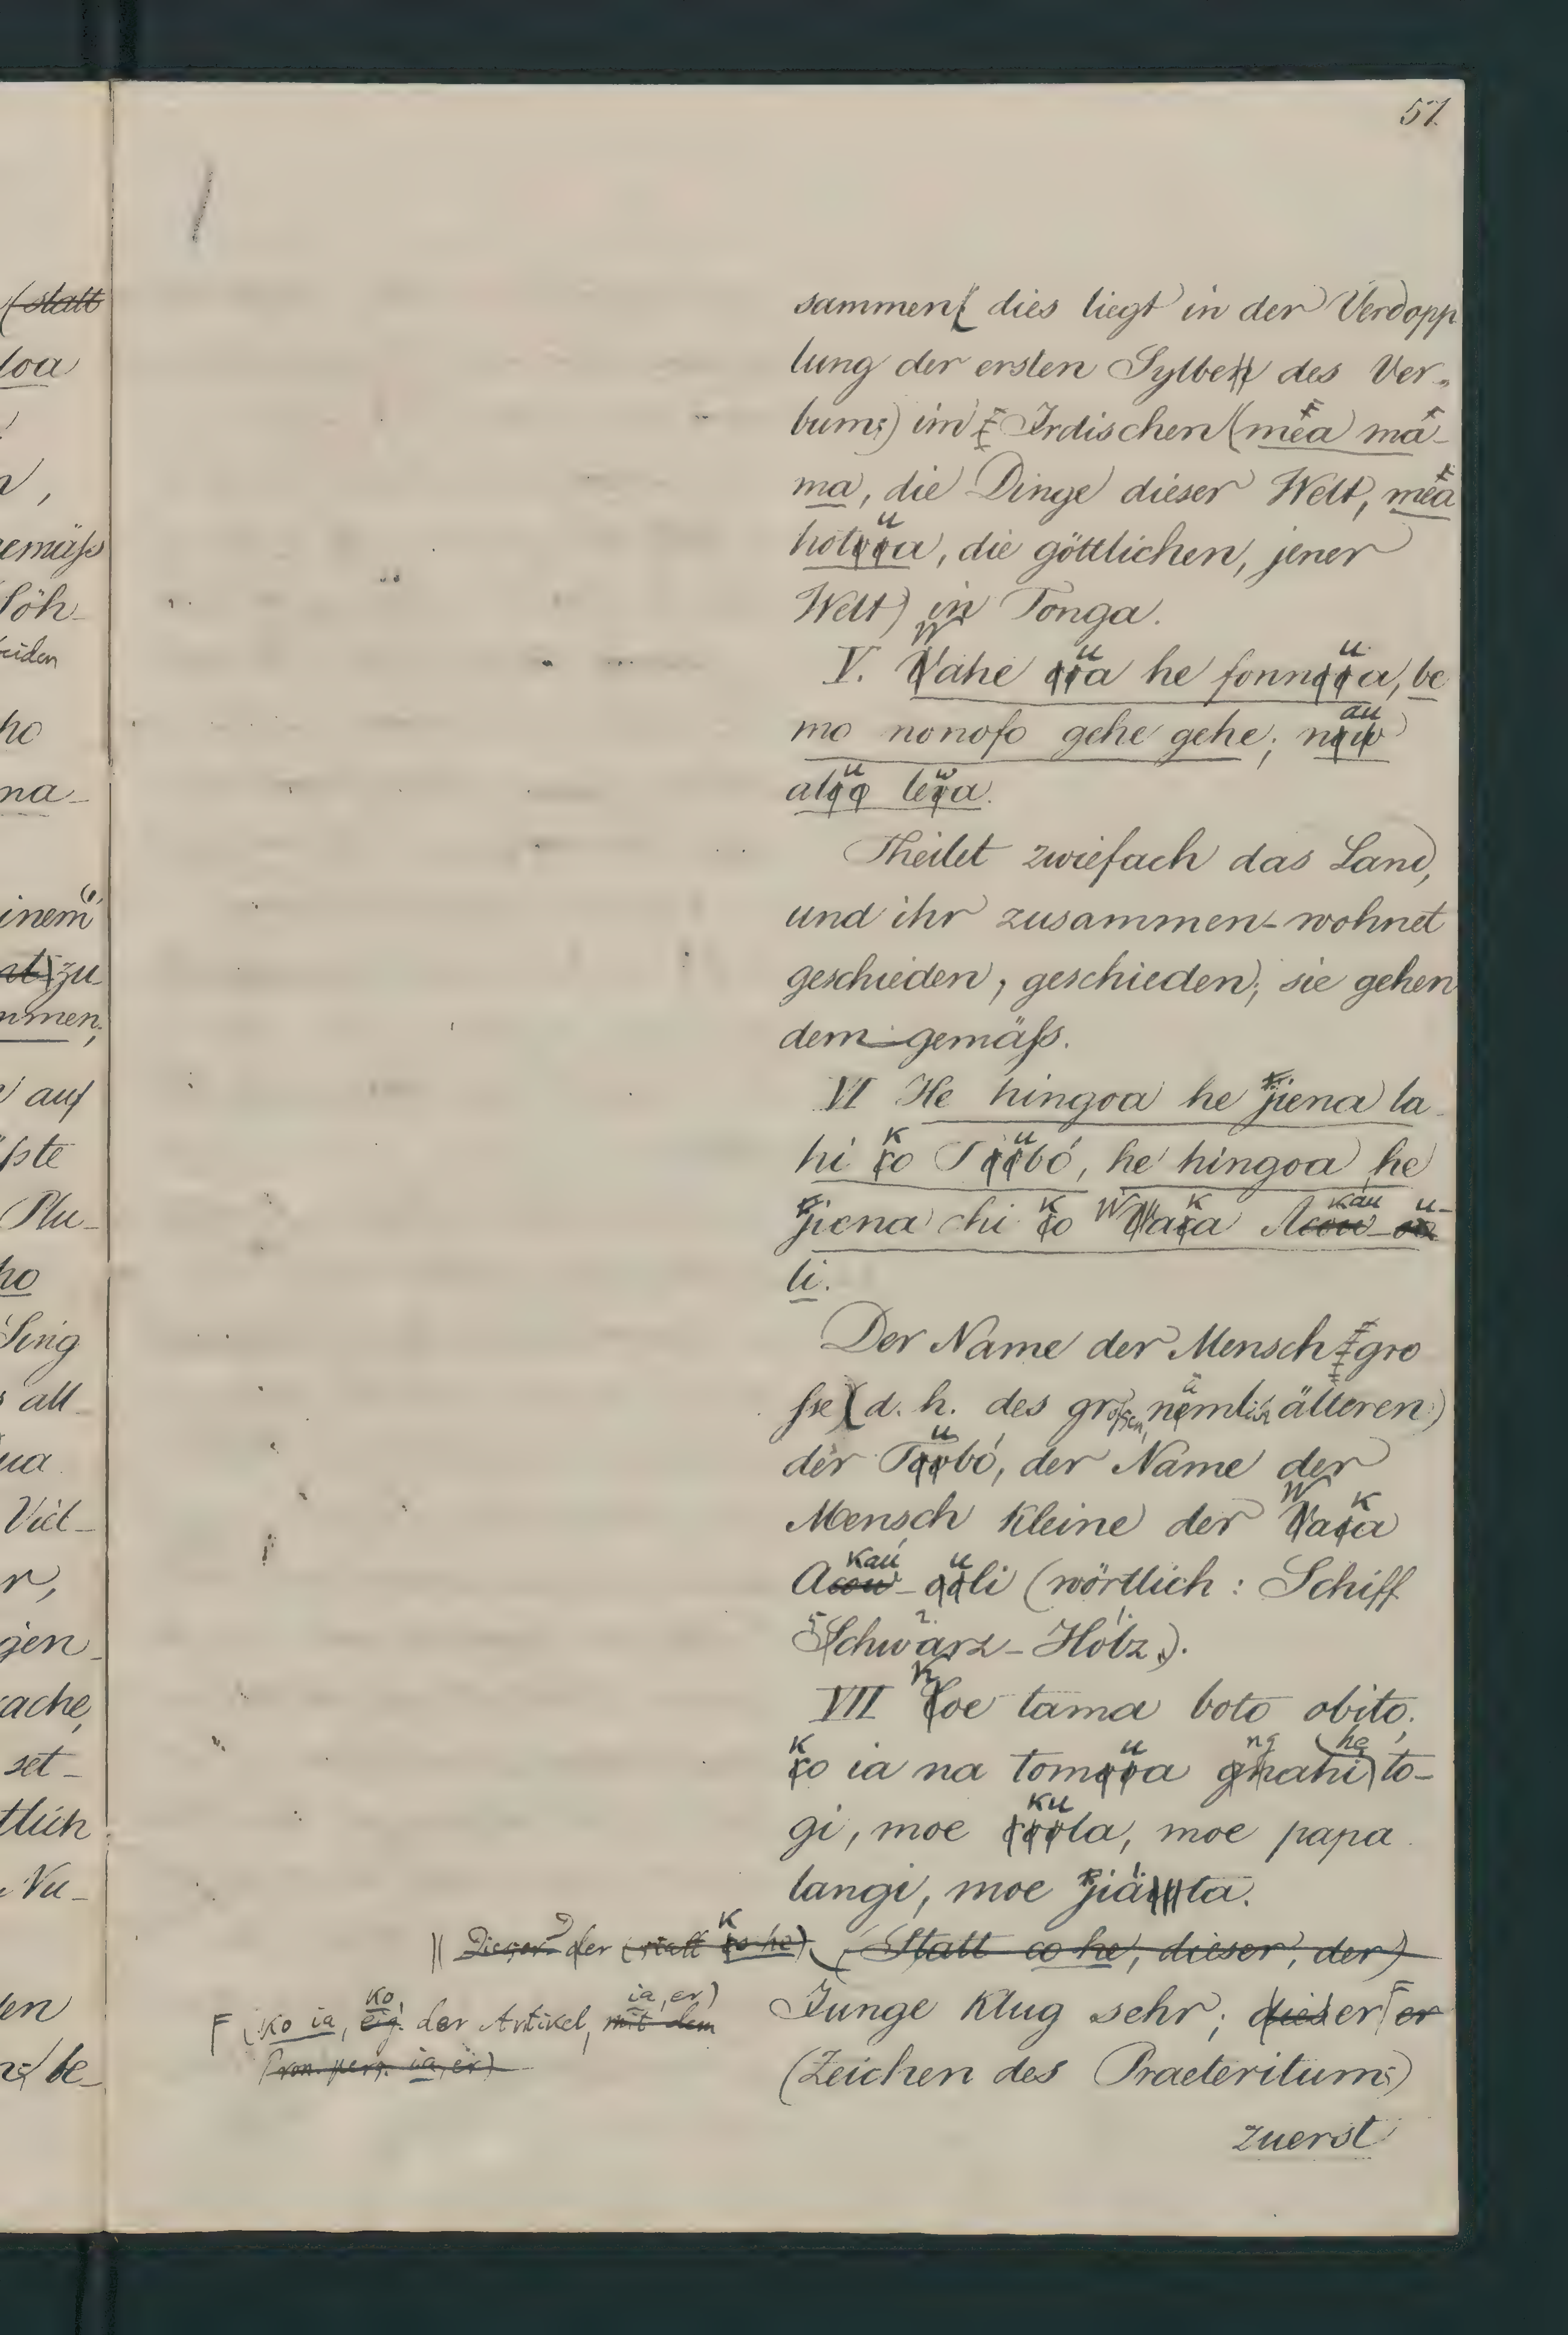 57.
sammen( dies liegt in der Verdopp
lung der ersten Sylbe des Ver-
bums) im Irdischen (mea ma-
ma, die Dinge dieser Welt, mea
hotua, die göttlichen, jener
Welt) in Tonga.
V. Wahe ua he fonnua, be
mo nonofo gehe gehe; nau
alu lewa.
Theilet zwiefach das Land,
und ihr zusammen-wohnet
geschieden, geschieden; sie gehen
dem-gemäſs.
VI He hingoa he jiena la-
hi ko Tubó, he hingoa he
jiena chi ko Waka Akau-u-
li.
Der Name der Mensch gro
ſse (d. h. des groſsen, nämlich älteren)
der Tubó, der Name der
Mensch Kleine der Waka
Akau-uli (wörtlich: Schiff
Schwarz-Holz).
VII Koe tama boto obito;
ko ia na tomua ngahe to-
gi, moe kula, moe papa
langi, moe jiäta.
|| Dieser der (statt ko he) (Statt co he, dieser, der)
Junge Klug sehr; dieser er
F (Ko ia, eig. ko, der Artikel, mit dem ia, er)
Pron. pers. ia, er)
(Zeichen des Praeteritums)
zuerst
(statt
loa
gemäſs
Söh-
beiden
ho
na-
inem
zu-
mmen,
auf
ſste
Plu-
ho
Sing
all-
ua
Viel-
r,
gen-
rache,
set-
tlich
Vu-
en
be-